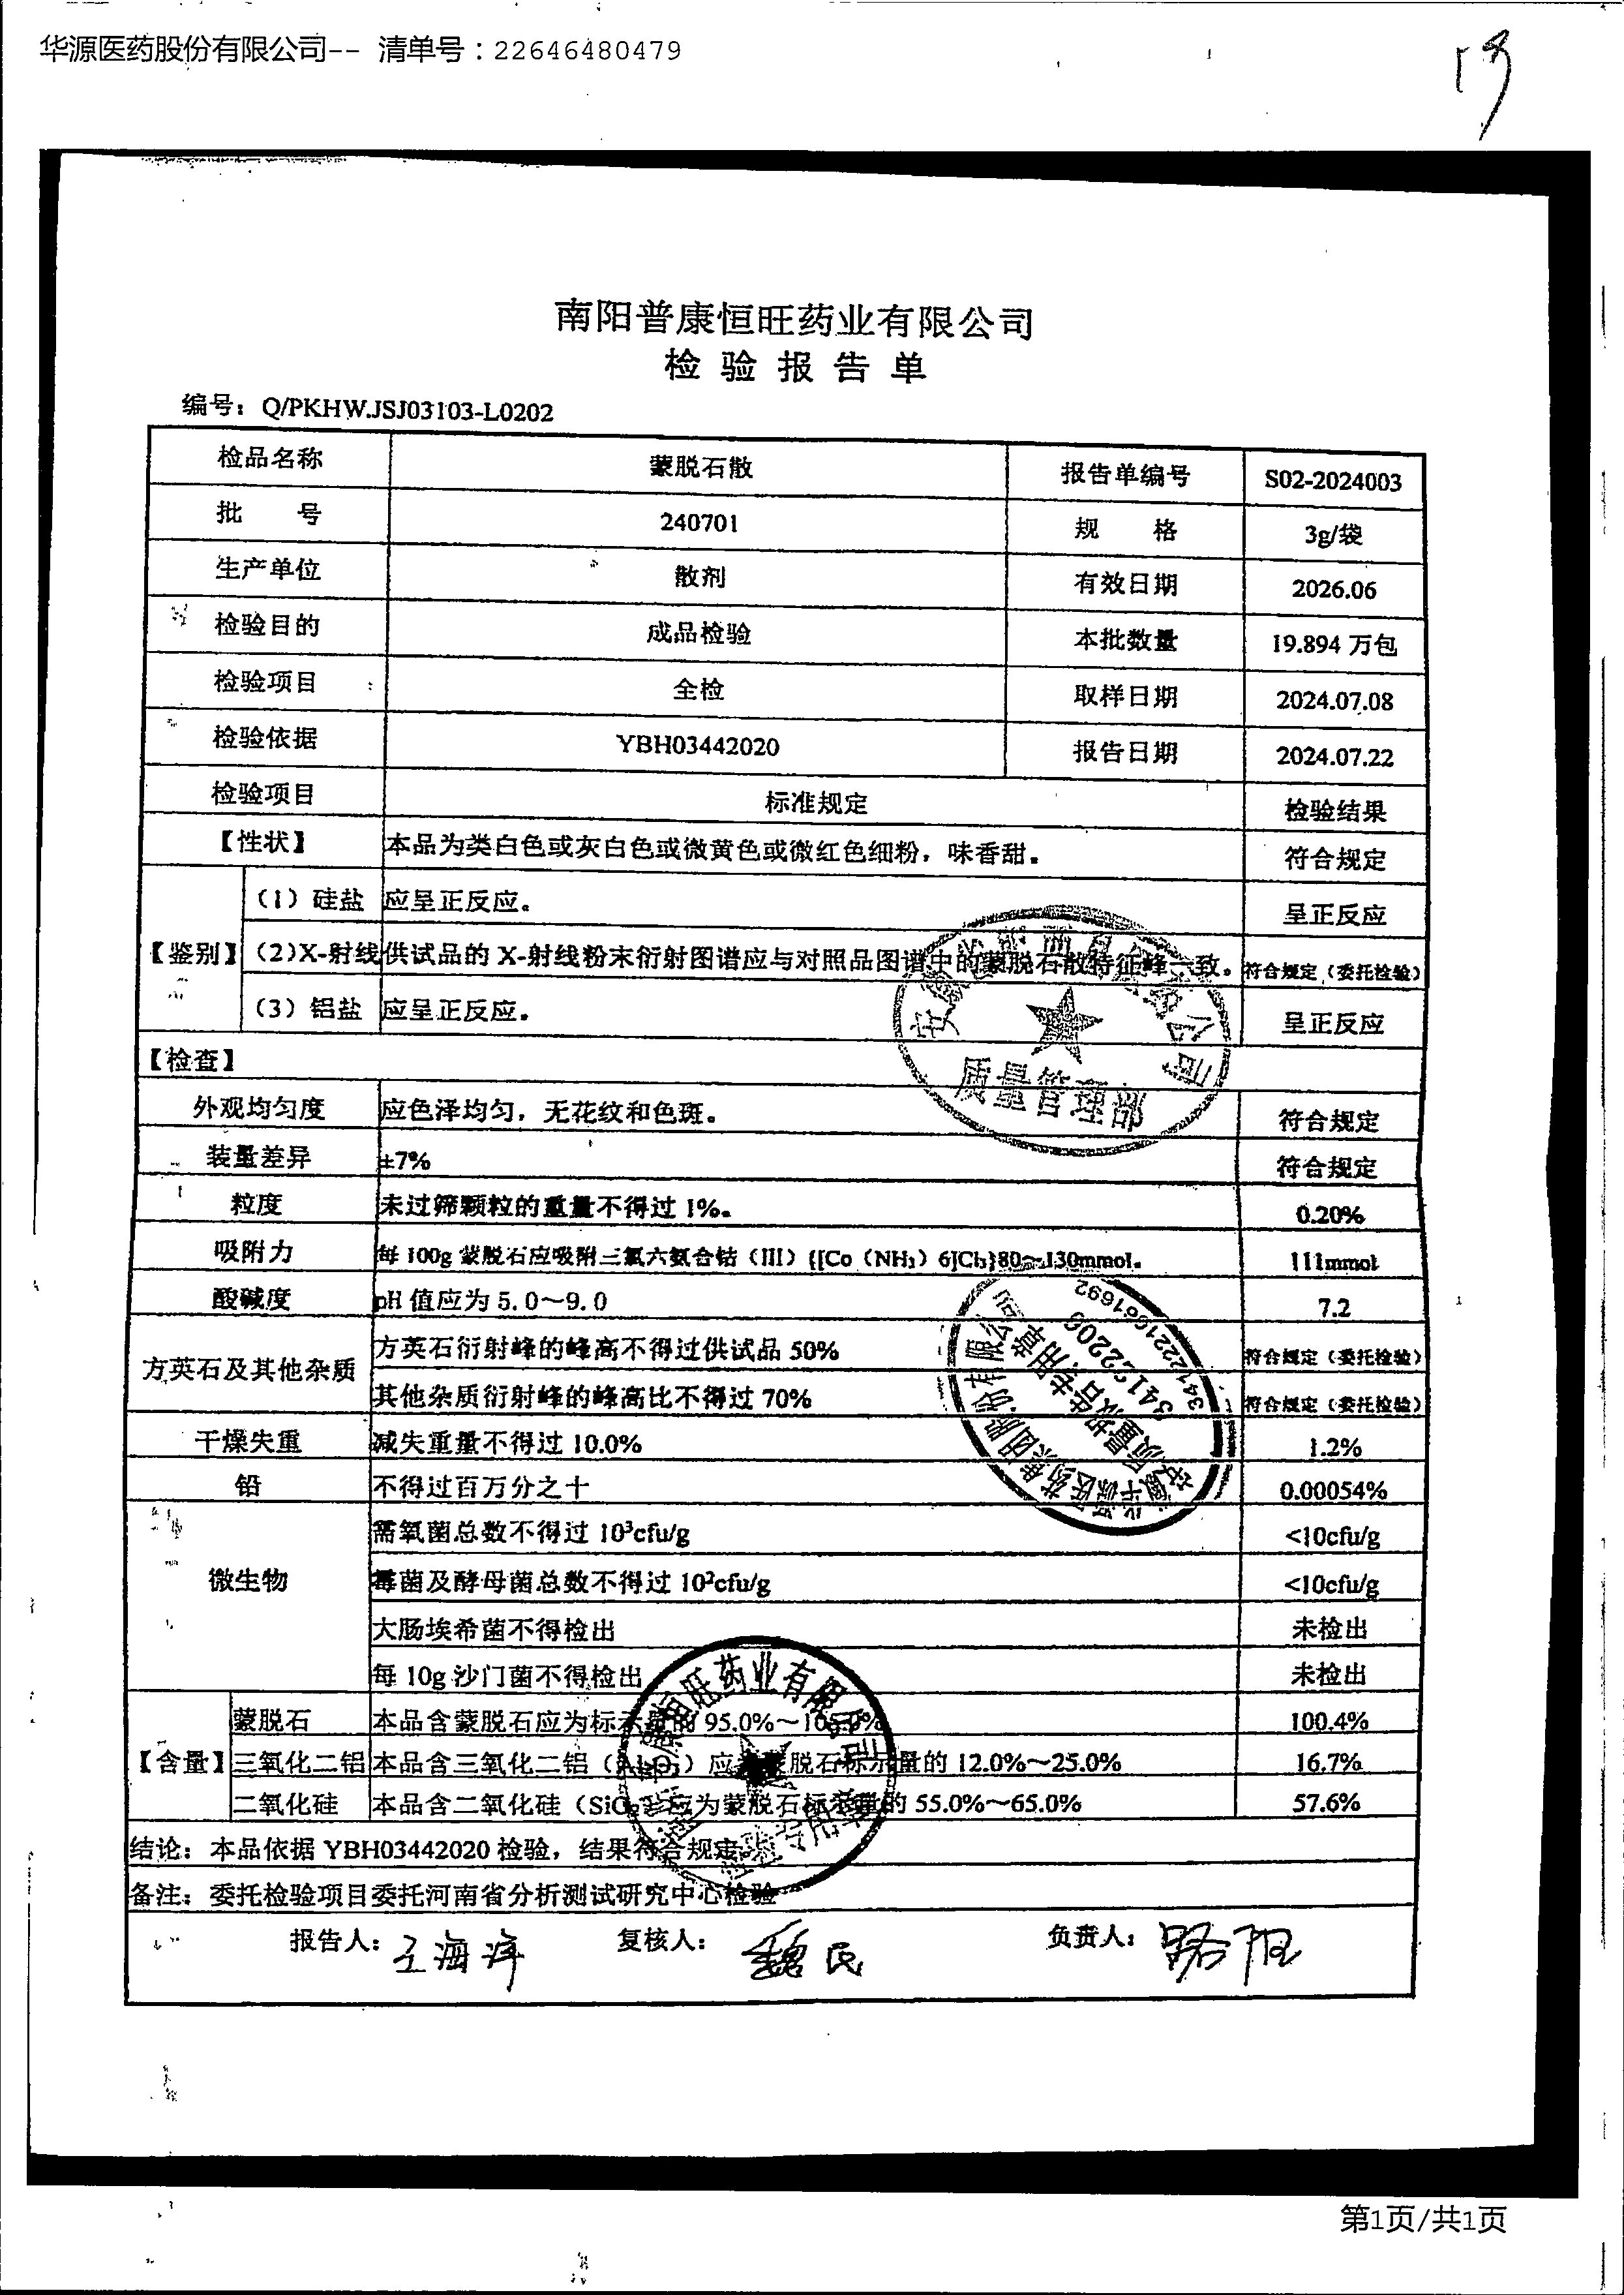 华源医药股份有限公司-- 清单号：22646480479
南阳普康恒旺药业有限公司
检 验 报 告 单
编号：Q/PKHW.JSJ03103-L0202
检品名称 蒙脱石散 报告单编号 S02-2024003
批 号 240701 规 格 3g/袋
生产单位 散剂 有效日期 2026.06
检验目的 成品检验 本批数量 19.894 万包
检验项目 全检 取样日期 2024.07.08
检验依据 YBH03442020 报告日期 2024.07.22
检验项目 标准规定 检验结果
【性状】 本品为类白色或灰白色或微黄色或微红色细粉，味香甜。 符合规定
（1）硅盐 应呈正反应。 呈正反应
【鉴别】 (2)X-射线 供试品的 X-射线粉末衍射图谱应与对照品图谱中的蒙脱石散特征峰一致。 符合规定（委托检验）
（3）铝盐 应呈正反应。 呈正反应
【检查】
质量管理部
外观均匀度 应色泽均匀，无花纹和色斑。 符合规定
装量差异 ±7% 符合规定
粒度 未过筛颗粒的重量不得过 1%。 0.20%
吸附力 每 100g 蒙脱石应吸附三氯六氨合钴（III）{[Co（NH₃）6]Cl₃}80～130mmol。 111mmol
酸碱度 pH 值应为 5.0～9.0 7.2
方英石及其他杂质 方英石衍射峰的峰高不得过供试品 50% 符合规定（委托检验）
其他杂质衍射峰的峰高比不得过 70% 符合规定（委托检验）
干燥失重 减失重量不得过 10.0% 1.2%
铅 不得过百万分之十 0.00054%
微生物 需氧菌总数不得过 10³cfu/g <10cfu/g
霉菌及酵母菌总数不得过 10²cfu/g <10cfu/g
大肠埃希菌不得检出 未检出
每 10g 沙门菌不得检出 未检出
蒙脱石 本品含蒙脱石应为标示量的 95.0%～105.0% 100.4%
【含量】 三氧化二铝 本品含三氧化二铝（Al₂O₃）应为蒙脱石标示量的 12.0%～25.0% 16.7%
二氧化硅 本品含二氧化硅（SiO₂）应为蒙脱石标示量的 55.0%～65.0% 57.6%
结论：本品依据 YBH03442020 检验，结果符合规定
备注：委托检验项目委托河南省分析测试研究中心检验
报告人：王海洋 复核人：魏民 负责人：路阳
第1页/共1页